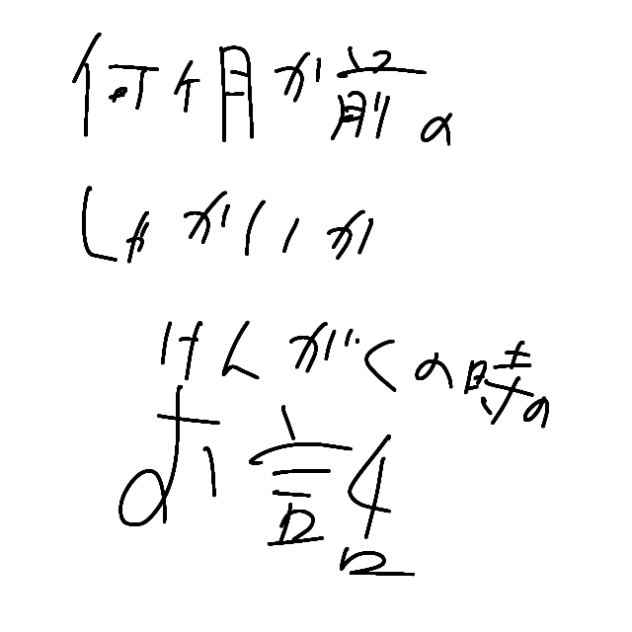 何ヶ月か前の
しゃかいか
けんがくの時の
お話